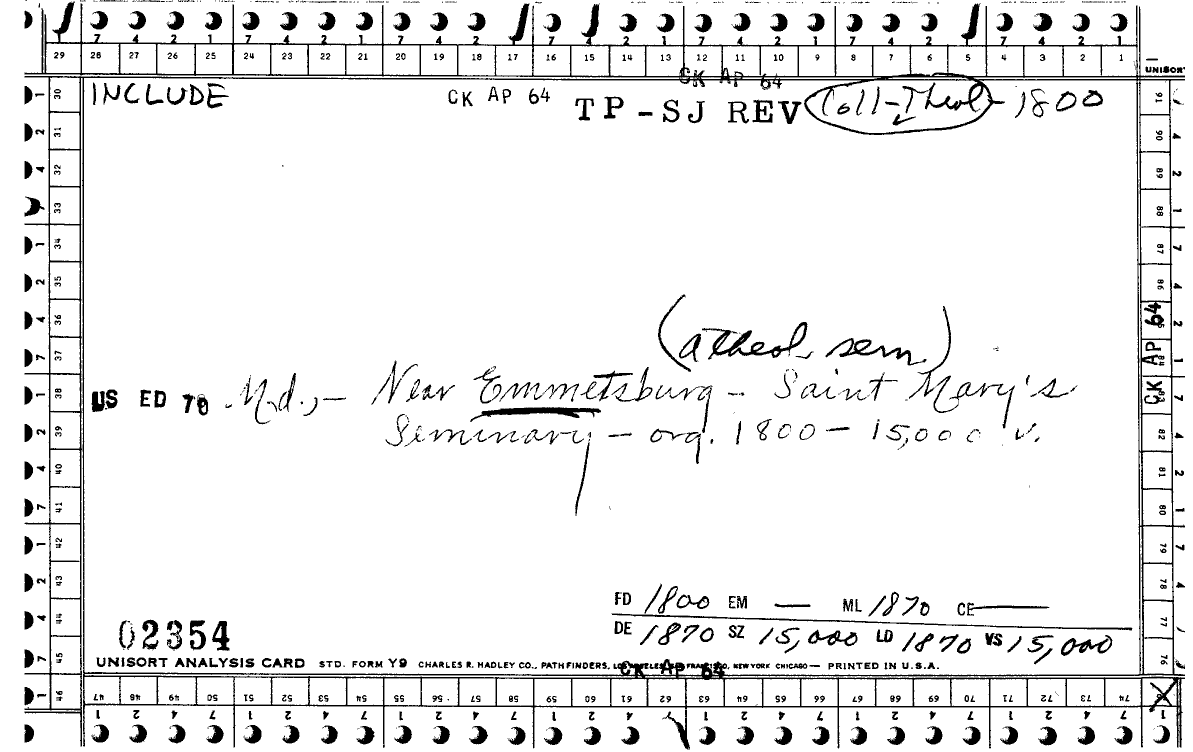 7 4 2 1 7 4 2 1 7 4 2 1 7 4 2 1 7 4 2 1 7 4 2 1
29 28 27 26 25 24 23 22 21 20 19 18 17 16 15 14 13 12 11 10 9 8 7 6 5 4 3 2 1
CK AP 64
UNISORT
INCLUDE CK AP 64 TP-SJ REV Coll-Theol-1800
(a theol. sem.)
US ED 70 Md.,- Near Emmetsburg - Saint Mary's
Seminary - org. 1800 - 15,000 v.
CK AP 64
FD 1800 EM — ML 1870 CE —
DE 1870 SZ 15,000 LD 1870 VS 15,000
02354
UNISORT ANALYSIS CARD STD. FORM Y9 CHARLES R. HADLEY CO., PATHFINDERS, LOS ANGELES SAN FRANCISCO, NEW YORK CHICAGO — PRINTED IN U.S.A.
CK AP 64
30 31 32 33 34 35 36 37 38 39 40 41 42 43 44 45 46
91 90 89 88 87 86 83 82 81 80 79 78 77 76
47 48 49 50 51 52 53 54 55 56 57 58 59 60 61 62 63 64 65 66 67 68 69 70 71 72 73 74
1 2 4 7 1 2 4 7 1 2 4 7 1 2 4 7 1 2 4 7 1 2 4 7 1 2 4 7